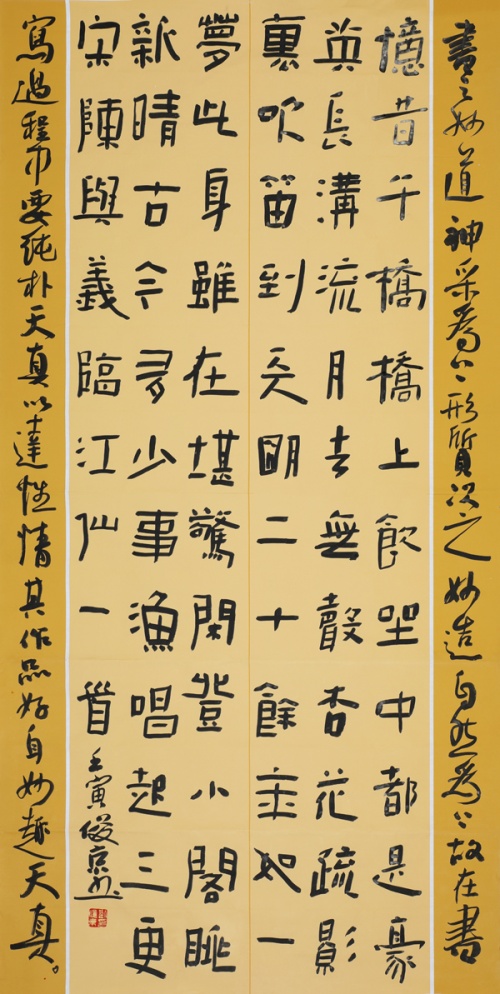 書之妙道神采為上形質次之妙造自然為上故在書
憶昔千橋橋上飲坐中都是豪
英長溝流月去無聲杏花疏影
裏吹笛到天明二十餘年如一
夢此身雖在堪驚閑登小閣眺
新晴古今多少事漁唱起三更
宋陳與義臨江仙一首
壬寅俊京书
寫過程中要純朴天真以達性情其作品好自妙趣天真。